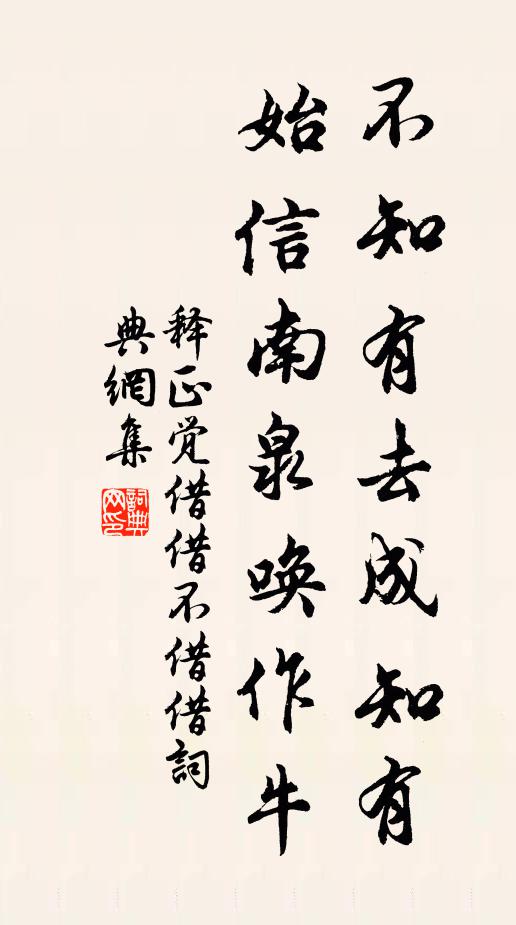 不知有去成知有
始信南泉唤作牛
释正觉借借不借借詞
典網集
詞典
网印